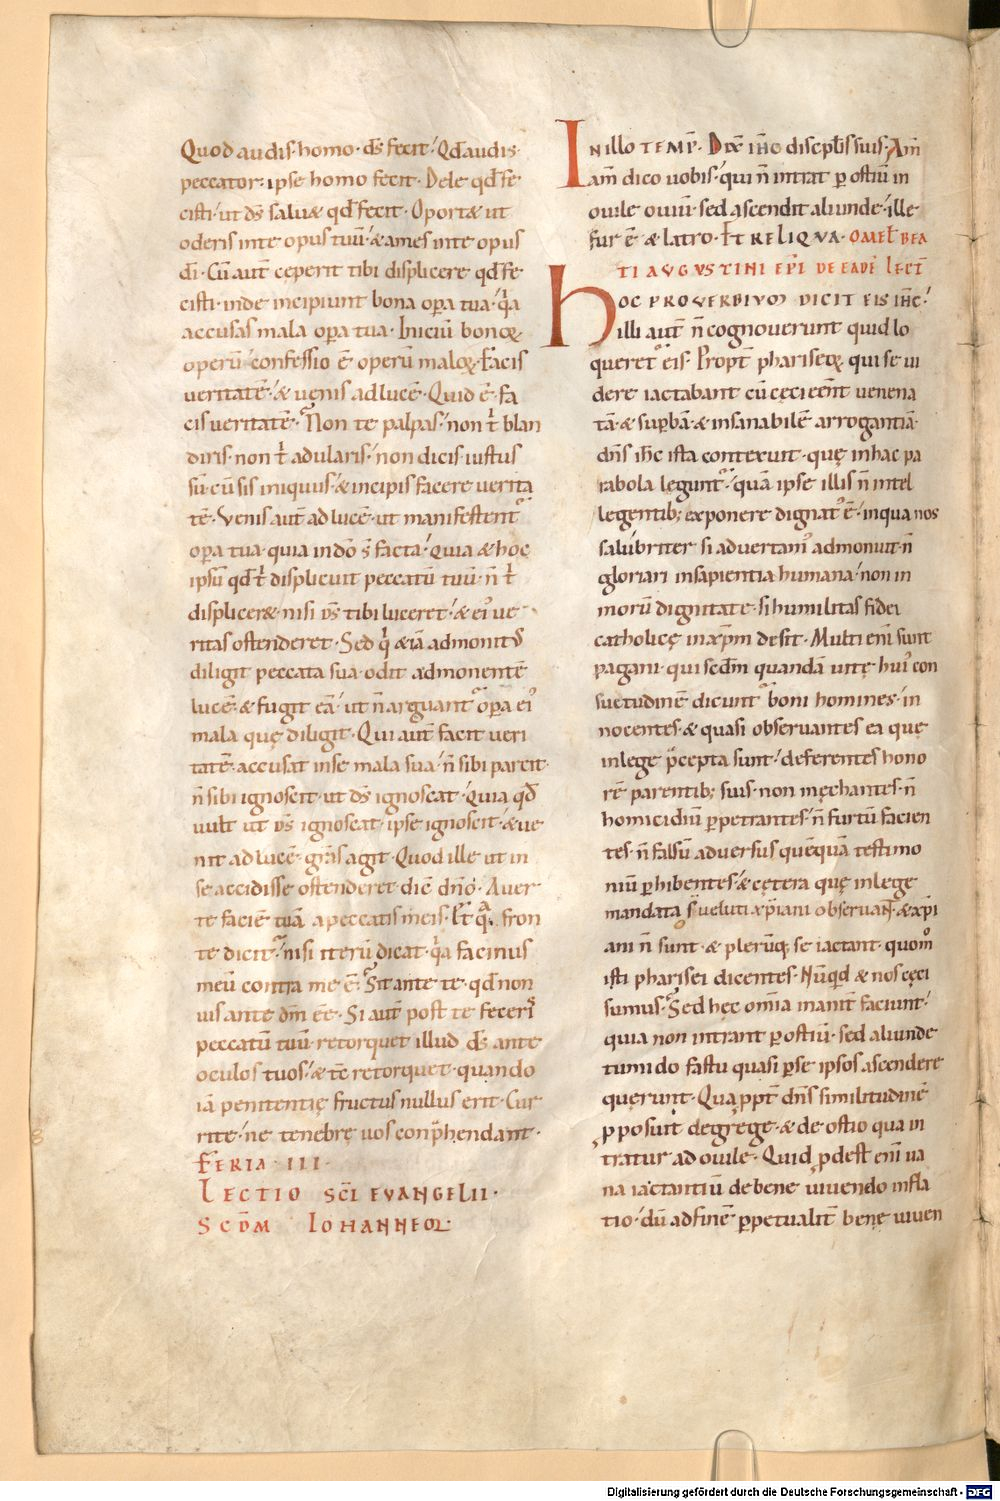 Quod audis homo· d̅s fecit·́ Qd̅ audis·
peccator: ipse homo fecit· Dele qd̅ fe
cisti·́ ut d̅s saluet qd̅ fecit· Oportet ut
oderis inte opus tuu̅·́ & ames inte opus
di̅· Cu̅ aut̅ cęperit tibi displicere qd̅ fe
cisti· inde incipiunt bona op̲a tua· q̍a
accusas mala op̲a tua· Iniciu̅ bonoꝝ
operu̅ confessio e̅ operu̅ maloꝝ· Facis
veritate̅·́ & venis ad luce̅· Quid e̅· fa
cis veritate̅· Non te palpas·́ non t̍ blan
diris· non t̍ adularis·́ non dicis iustus
su̅· cu̅ sis iniquus·́ & incipis facere uerita
te̅· Venis aut̅ ad luce̅· ut manifestent᷑
op̲a tua· quia in do̅ s̅ facta·́ Quia & hoc
ipsu̅ qd̅ t̍ displicuit peccatu̅ tuu̅· n̅ t̍
displiceret· nisi d̅s tibi luceret·́ & ei᷒ ve
ritas ostenderet· Sed q̍ & ia̅ admonit᷒
diligit peccata sua· odit admonente̅
luce̅· & fugit ea̅·́ ut n̅ arguant᷑ op̲a ei᷒
mala quę diligit· Qui aut̅ facit veri
tate̅· accusat inse mala sua·́ n̅ sibi parcit·
n̅ sibi ignoscit· ut d̅s ignoscat·́ Quia qd̅
uult ut d̅s ignoscat·́ ipse ignoscit·́ & ve
nit ad luce̅· gr̅as agit· Quod ille ut in
se accidisse ostenderet· dic̅ dn̅o·́ Auer
te facie̅ tua̅ a peccatis meis· Et qͣ fron
te dicit· nisi iteru̅ dicat· q̍a facinus
meu̅ contra me e̅· Sit ante te· qd̅ non
uis ante dm̅ ee̅· Si aut̅ post te feceris
peccatu̅ tuu̅· retorquet illud d̅s ante
oculos tuos·́ & tc̅ retorquet· quando
ia̅ penitentię fructus nullus erit· Cur
rite·́ ne tenebrę uos conp̍hendant·
FERIA · III·
LECTIO SC̅I EVANGELII·
SCD̅M IOHANNEM·
In illo TEMP̅· Dix̅ ih̅c discipl̅is suis· Am̅
am̅ dico uobis·́ qui n̅ intrat p̲ ostiu̅ in
ouile ouiu̅· sed ascendit aliunde·́ ille
fur e̅ & latro· ET RELIQVA· OMEL̅ BEA
TI AVGVSTINI EP̅I DE EADE̅ LECT̅
HOC PROVERBIVM DICIT EIS IH̅C·́
illi aut̅ n̅ cognouerunt quid lo
queret᷑ eis· Propt̅ phariseoꝝ qui se ui
dere iactabant cu̅ cęci ee̅nt· venena
ta̅· & sup̲ba̅· & insanabile̅ arrogantia̅·
dn̅s ih̅c ista contexuit· quę in hac pa
rabola legunt᷑·́ qua̅ ipse illis n̅ intel
legentib; exponere dignat᷒ e̅·́ in qua nos
salubriter si aduertam᷒ admonuit· n̅
gloriari in sapientia humana·́ non in
moru̅ dignitate· si humilitas fidei
catholicę in xp̅m desit· Multi eni̅ sunt
pagani· qui scdm̅ quanda̅ uitę hui᷒ con
suetudine̅ dicunt᷑ boni homines· in
nocentes· & quasi obseruantes ea quę
in lege p̍cepta sunt·́ deferentes hono
re̅ parentib; suis· non męchantes· n̅
homicidiu̅ p̲petrantes·́ n̅ furtu̅ facien
tes· n̅ falsu̅ aduersus quęqua̅ testimo
niu̅ p̲hibentes·́ & cętera quę in lege
mandata s̅ ueluti xp̅iani obseruant̅· & xp̅i
ani n̅ sunt· & pleru̅q; se iactant· quom᷒
isti pharisei dicentes· Nu̅qd̍ & nos cęci
sumus· Sed hęc om̅ia inanit̅ faciunt·́
quia non intrant p̲ ostiu̅· sed aliunde
tumido fastu quasi p̲se ipsos ascendere
quęrunt· Quap̲pt̅ dn̅s similitudine̅
ꝓposuit de grege· & de ostio qua in
tratur ad ouile· Quid ꝓdest eni̅ ua
na iactantiu̅ de bene uiuendo infla
tio·́ du̅ ad fine̅ p̲petualit̅ bene uiuen
Digitalisierung gefördert durch die Deutsche Forschungsgemeinschaft - DFG